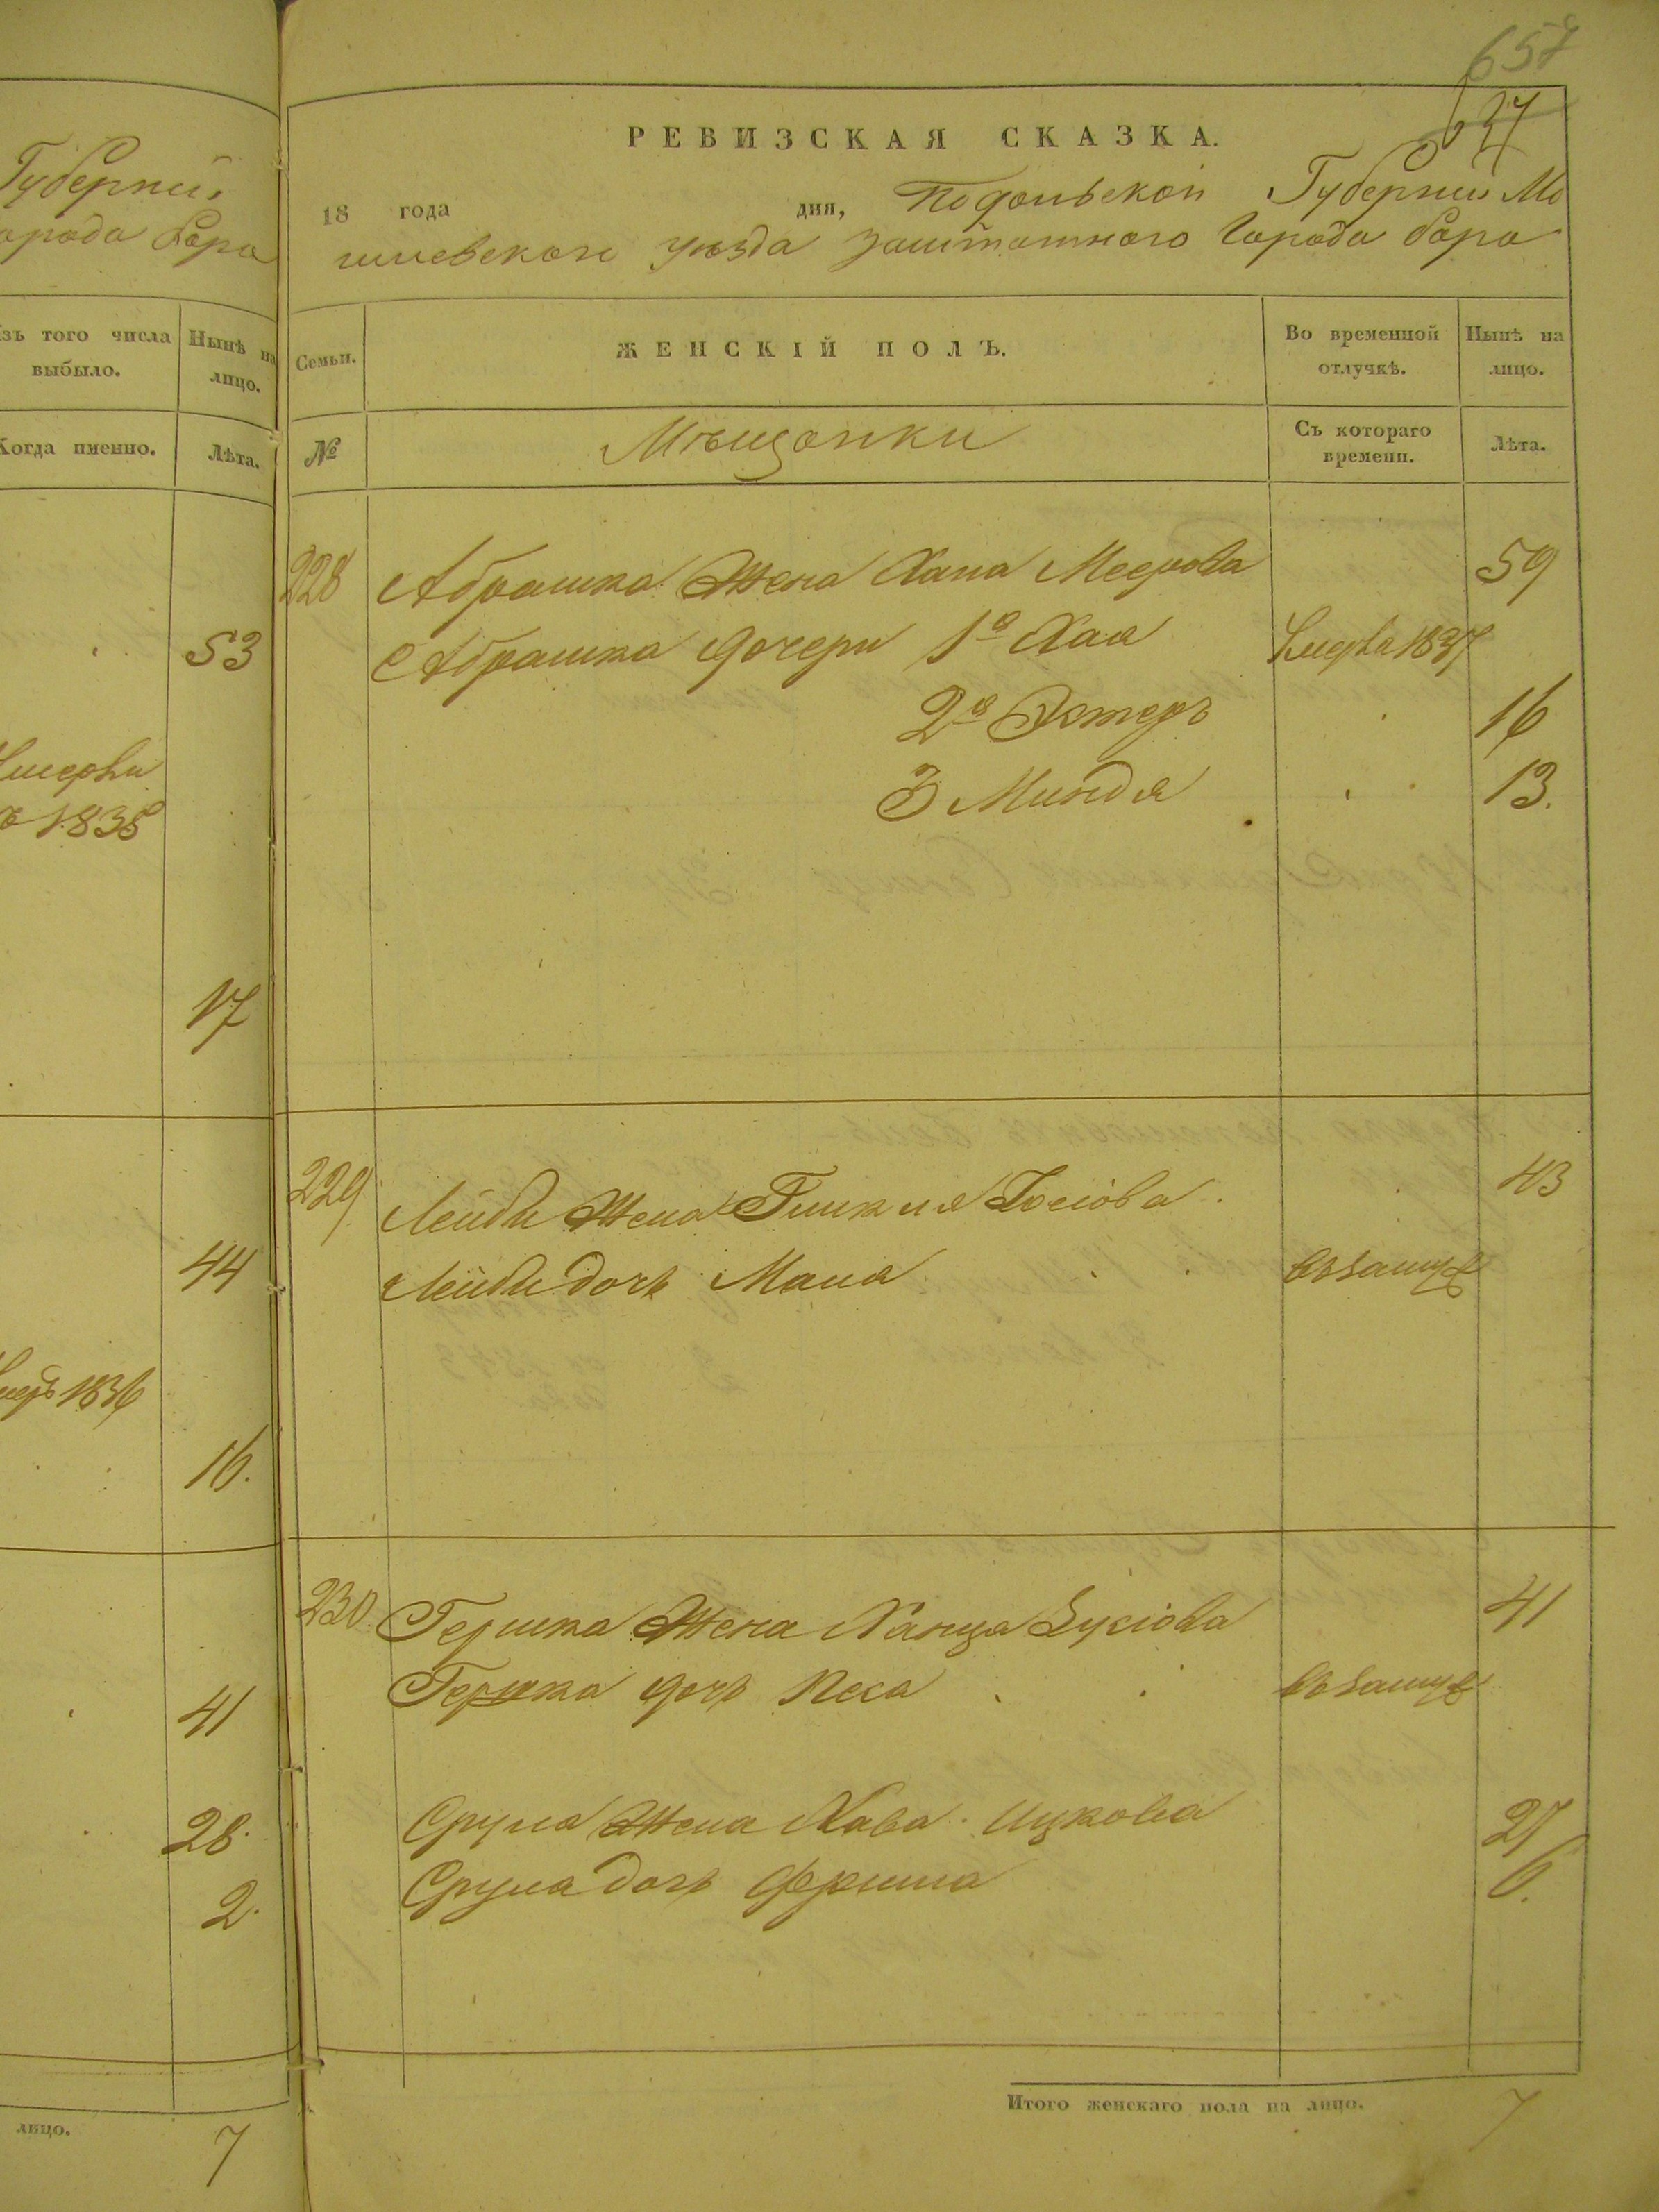 657
Губерніи
города Бара
Изъ того числа выбыло.
Нынѣ на лицо.
Когда именно.
Лѣта.
53
1838
17
44
1836
16.
41
28.
2.
лицо.
7
РЕВИЗСКАЯ СКАЗКА.
18 года дня, Подольской Губерніи Мо
гилевскаго уѣзда заштатнаго города Бара
Семьи.
ЖЕНСКІЙ ПОЛЪ.
Во временной отлучкѣ.
Нынѣ на лицо.
№
Мѣщанки
Съ котораго времени.
Лѣта.
228 Абрашка Жена Хана Меерова 59
Абрашка дочери 1я Хая 1837
2я Эстеръ 16
3 Миндля 13.
229 Лейби Жена Іосіова 43
Лейби дочь Маля взамуж
230 Гершка Жена Ханца Зусіова 41
Гершка дочь Песа взамуж
Сруля Жена Хава Ицкова 27
Сруля дочь Фрима 6.
Итого женскаго пола на лицо. 7